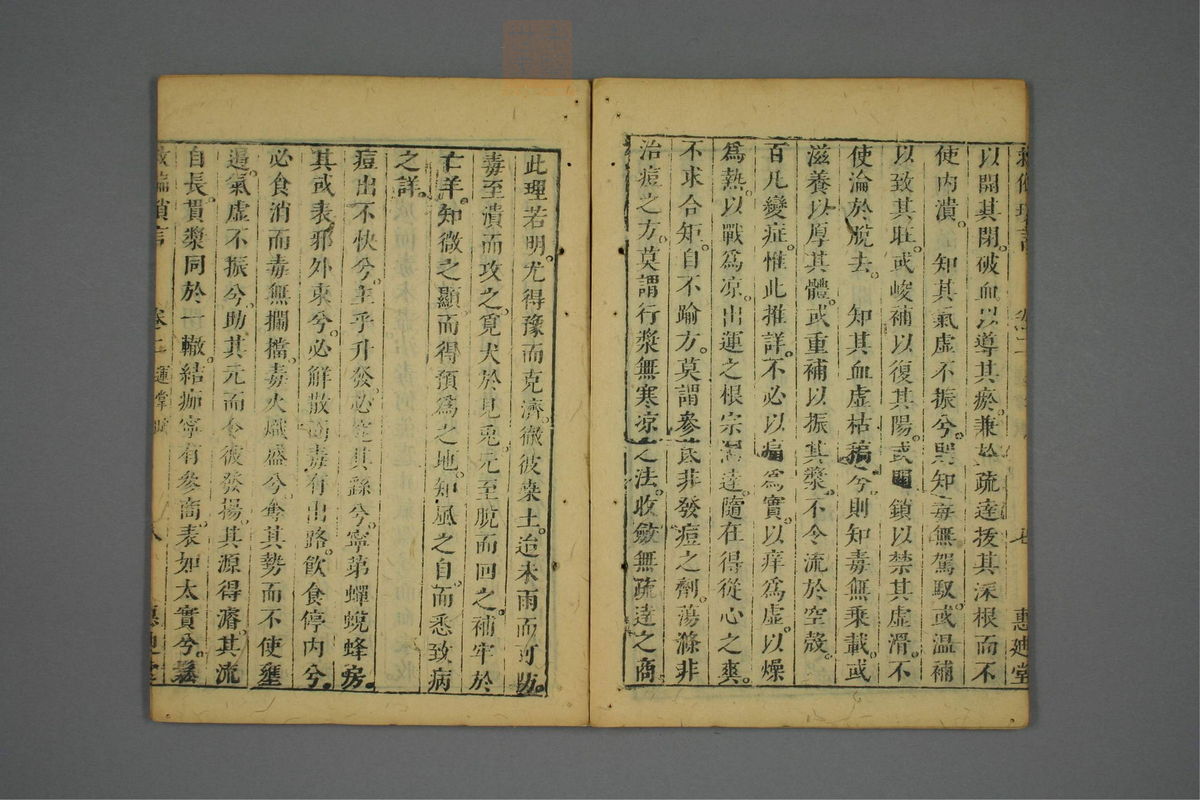 以開其閉。破血以導其瘀。兼於疏達拔其深根而不
使內潰。知其氣虛不振兮。則知毒無駕馭。或溫補
以致其旺。或峻補以復其陽。或關鎖以禁其虛滑。不
使淪於脫去。知其血虛枯槁兮。則知毒無乘載。或
滋養以厚其體。或重補以振其漿。不令流於空殼。
百凡變症。惟此推詳。不必以痛爲實。以痒爲虛。以燥
爲熱。以戰爲凉。出運之根宗。達。隨在得從心之爽。
不求合矩。自不踰方。莫謂參芪非發痘之劑。蕩滌非
治痘之方。莫謂行漿無寒凉之法。收斂無疏達之商。
惠迪堂
此理若明。尤得豫而克濟。徹彼桑土。迨未雨而可防。
毒至潰而攻之。覓犬於見兎。元至脫而回之。補牢於
亡羊。知微之顯。而得預爲之地。知風之自。而悉致病
之詳。
痘出不快兮。主乎升發。必從其繇兮。寧第蟬蛻蜂房。
其或表邪外束兮。必解散而毒有出路。飲食停內兮。
必食消而毒無攔擋。毒火熾盛兮。奪其勢而不使壅
遏。氣虛不振兮。助其元而令彼發揚。其源得濬。其流
自長。貫漿同於一轍。結痂寧有參商。表如太實兮。鬆
卷二 運掌賦 八